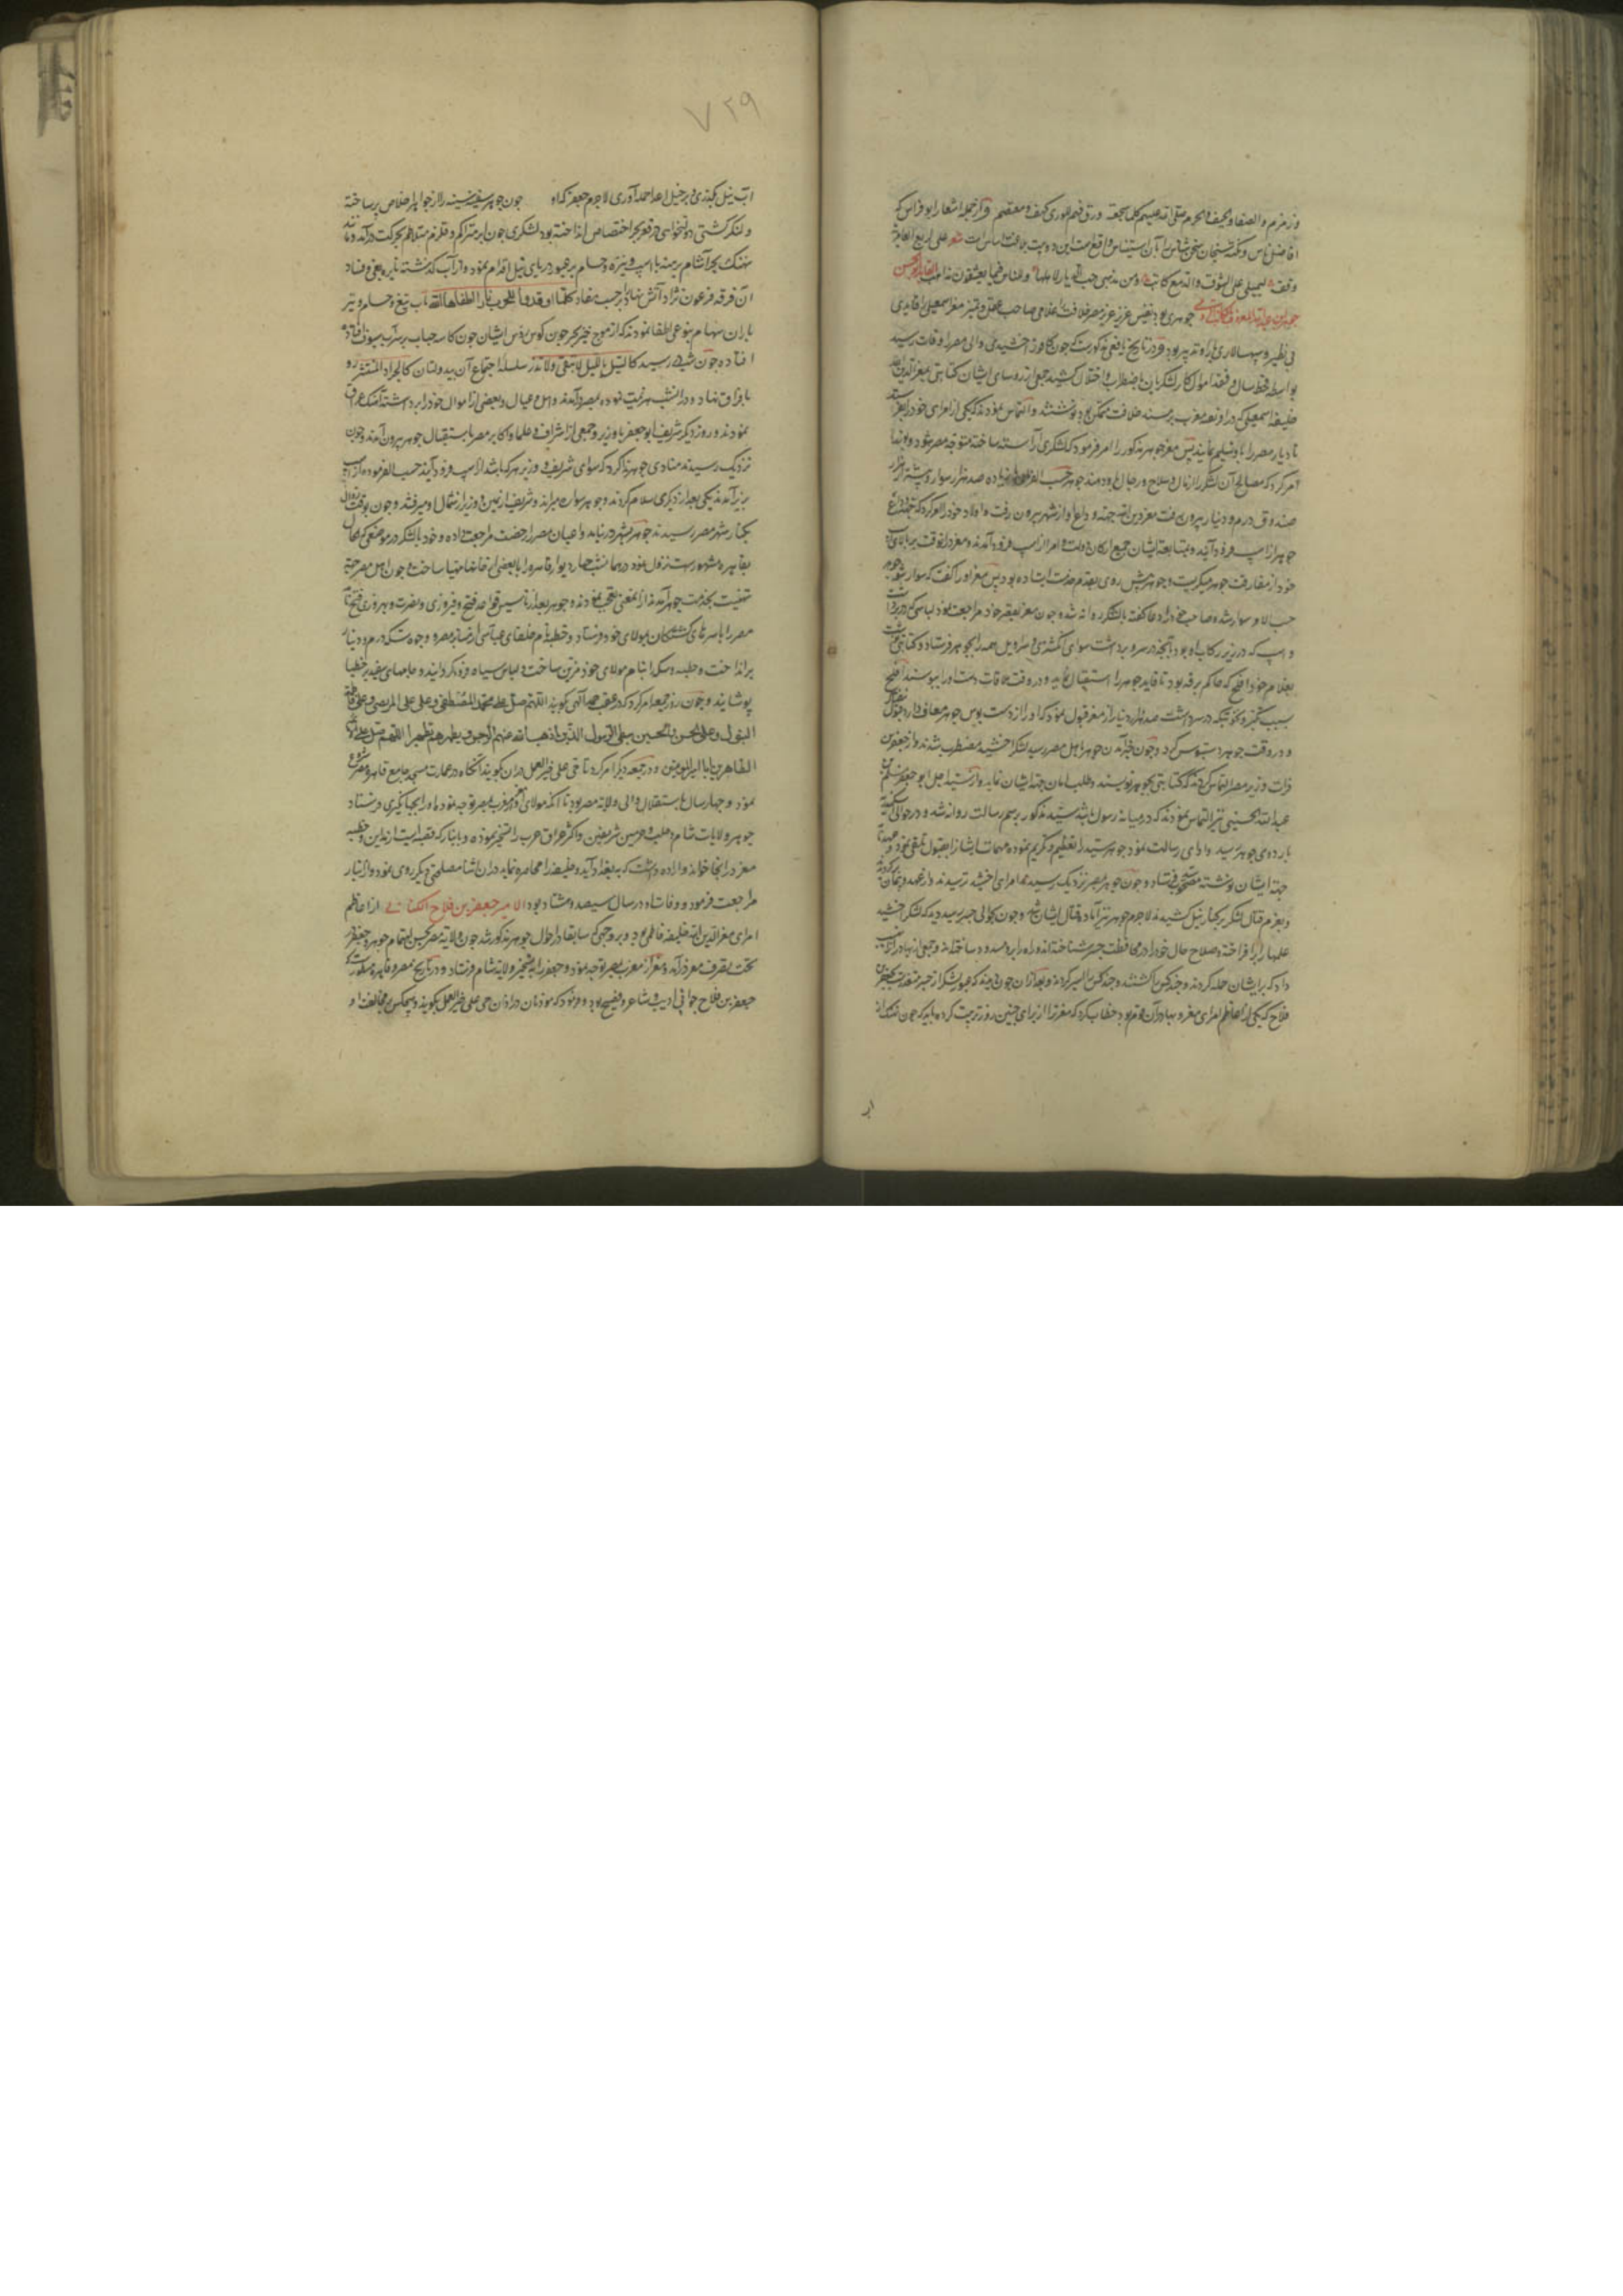 و زمزم والصفا و
افاضل ناس و نکته سنجان سخن شناس را
وقفت یمیلنی علی الشوق والدمع کاتب ومن مذهبی حب الدیار لاهلها وللناس فیما یعشقون مذاهب القاید ابو الحسن
جوهر بن عبدالله المعروف بالکاتب الرومی جوهری بود نفیس عزیز مصر خلافت را غلامی صاحب عقل و تمیز معز اسمعیلی را قایدی
بی نظیر و سپهسالاری با رای و تدبیر بود و در تاریخ یافعی مذکورست که چون کافور اخشیدی والی مصر را وفات رسید
بواسطه قحط سال و فقد اموال کار لشکریان باضطراب و اختلال کشید جمعی از روسای ایشان کتابتی بمعز الدین الله
خلیفه اسمعیلی که در آنوقت در مغرب بر مسند خلافت متمکن بود نوشتند و التماس نمودند که یکی از امرای خود را بفرستد
تا دیار مصر را باو تسلیم نمایند پس معز جوهر مذکور را امر فرمود که لشکری آراسته ساخته متوجه مصر شود و
امر کرد که مصالح آن لشکر از مال و سلاح و رجال جوهر حسب الفرمان زیاده صد هزار سوار و
صندوق درم و دینار بیرون رفت معز دین الله جهت وداع او از شهر بیرون رفت و اولاد خود را امر کرد که جهت وداع
جوهر از اسب فرود آیند و بمتابعت ایشان جمیع ارکان دولت و امرا از اسب فرود آمدند و معز در آنوقت بر بالای اسب
خود از مفارقت جوهر میگریست و جوهر پیش روی بقدم خدمت ایستاده بود پس معز او را گفت که سوار شو
حسب الامر سوار شده صاحب خود را دعا گفته با لشکر روانه شد و چون معز بقصر خود مراجعت نمود لباسی که در بر داشت
و اسپی که در زیر رکاب او بود با آنچه در سر و بر داشت سوای انگشتری و سراویل همه را بجوهر فرستاد و کتابتی نوشت
بغلام خود افلح که حاکم برقه بود تا قاید جوهر را استقبال نماید و در وقت ملاقات دست او را ببوسد افلح
بسبب تکبر و نخوتی که در سر داشت صد هزار دینار از معز قبول نمود که او را از دست بوس جوهر معاف دارد قبول نفرمود
و در وقت جوهر دستبوس کرد و چون خبر آمدن جوهر باهل مصر رسید لشکر اخشید مضطرب شدند و از جعفر بن
فرات وزیر مصر التماس کردند که کتابتی بجوهر نویسند و طلب امان جهت ایشان نماید و از سید اجل ابو جعفر مسلم بن
عبدالله الحسینی نیز التماس نمودند که در میانه رسول باشد سید مذکور برسم رسالت روانه شد و در حوالی اسکندریه
باردوی جوهر رسید و ادای رسالت نمود جوهر سید را تعظیم و تکریم نموده مهمات ایشانرا بقبول تلقی نمود و عهدنامه
جهة ایشان نوشته مصحوب سید فرستاد و چون جوهر بمصر نزدیک رسید امرای اخشید ترسیدند و از عهد و پیمان برگردیدند
و بعزم قتال لشکر بر کنار نیل کشیدند لاجرم جوهر نیز آماده قتال ایشان شد و چون بحوالی جسر رسید دید که لشکر اخشید
علمها برافراخته و صلاح حال خود را در محافظت جسر شناخته‌اند و راه را بر او مسدود ساخته‌اند و جمعی از بهادران را
داد که بر ایشان حمله کردند و چند کس را کشتند و چند کس را اسیر کردند و بعد از آن چون دیدند که عبور لشکر از جسر متعذرست بجعفر بن
فلاح که یکی از اعاظم امرای معز و بهادران قوم بود خطاب کرد که معز ترا از برای چنین روز تربیت کرده باید که چون نهنک از
اب
۷۲۹
آب نیل بگذری و بر خیل اعدا حمله آوری لاجرم جعفر که او چون جوهر سفینه سینه را از جواهر اخلاص پر ساخته
و لنگر کشتی دولتخواهی در قعر بحر اختصاص انداخته بود با لشکری چون ابر متراکم و قلزم متلاطم بحرکت درآمد و مانند
نهنک بحر آشام برهنه با اسپ و نیزه و حسام بر عبور دریای نیل اقدام نمود و از آب گذشته نایره بغی و فساد
آن فرقه فرعون نژاد آتش نهاد را بر حسب مفاد کلما اوقدوا نارا للحرب اطفاها الله بآب تیغ و حسام و تیر
باران سهام بنوعی اطفا نمودند که از موج خیز بحر خون کوس رؤس ایشان چون کاسه حباب بر سر آب
افتاده چون شب در رسید سلسله اجتماع آن بیدولتان کالجراد المنتشر رو
بافراق نهاد و در آنشب هزیمت نموده بمصر درآمدند و اهل و عیال و بعضی از اموال خود را برداشته آهنک عراق
نمودند و روز دیگر شریف ابو جعفر با وزیر و جمعی از اشراف و علما و اکابر مصر باستقبال جوهر بیرون آمدند و چون
نزدیک رسیدند منادی جوهر ندا کرد که سوای شریف و وزیر هر که باشد از اسپ فرود آیند حسب الفرموده از اسپ
بزیر آمدند یکی بعد از دیگری سلام کردند و جوهر سواره میراند و شریف از یمین و وزیر از شمال او میرفتند و چون بوقت زوال
بکنار شهر مصر رسیدند جوهر بشهر در نیامد و اعیان مصر را رخصت مراجعت داده و خود با لشکر در موضعی که حالا
بقاهره مشهورست نزول نمود در همانشب چهار دیوار قاهره را با بعضی از خانها مهیا ساخت و چون اهل مصر جهة
تهنیت بخدمت جوهر آمدند از آنمعنی تعجب نمودند و جوهر بعد از تاسیس قواعد فتح و فیروزی و نصرت و بهروزی فتح نامه
مصر را با سرهای کشتگان بمولای خود فرستاد و خطبه بنام خلفای عباسی از منابر مصر و وجوه سکه درم و دینار
برانداخت و خطبه و سکه را بنام مولای خود مزین ساخت و لباس سیاه دور گردانید و جامهای سفید بر خطبا
پوشانید و چون روز جمعه امر کرد که در عقب حمد الهی گویند اللهم صل علی محمد المصطفی و علی علی المرتضی و علی فاطمة
البتول و علی الحسن والحسین سبطی الرسول الذین اذهب الله عنهم الرجس و یطهرهم تطهیرا اللهم صل علی
الطاهرین اباء امیر المؤمنین و در جمعه دیگر امر کرد تا حی علی خیر العمل در اذان گویند آنگاه در عمارت مسجد جامع قاهره شروع
نمود و چهار سال باستقلال والی ولایة مصر بود تا آنکه مولای او معز از مغرب بمصر توجه نمود و او را بجهانگیری فرستاد
جوهر ولایات شام و حلب و حرمین شریفین و اکثر عراق عرب را تسخیر نموده و بانبار که قصبه ایست از مداین و خطبه
معز در آنجا خواند و اراده داشت که ببغداد آید و خلیفه را محاصره نماید در آن اثنا مصلحتی دیگر روی نمود و از انبار
مراجعت فرمود و وفات او در سال سیصد و هشتاد بود الامیر جعفر بن فلاح الکتامی از اعاظم
امرای معز الدین الله خلیفه فاطمی بود و بر وجهی که سابقا در احوال جوهر مذکور شد چون ولایة مصر بحسن اهتمام جوهر و جعفر
تحت تصرف معز درآمد و معز از مغرب بمصر توجه نمود و جعفر را بتسخیر ولایة شام فرستاد و در تاریخ مصر و قاهره مسطورست که
جعفر بن فلاح جوانی ادیب و شاعر و فصیح بود و فرمود که موذنان در اذان حی علی خیر العمل بگویند و هیچکس بر مخالفت او